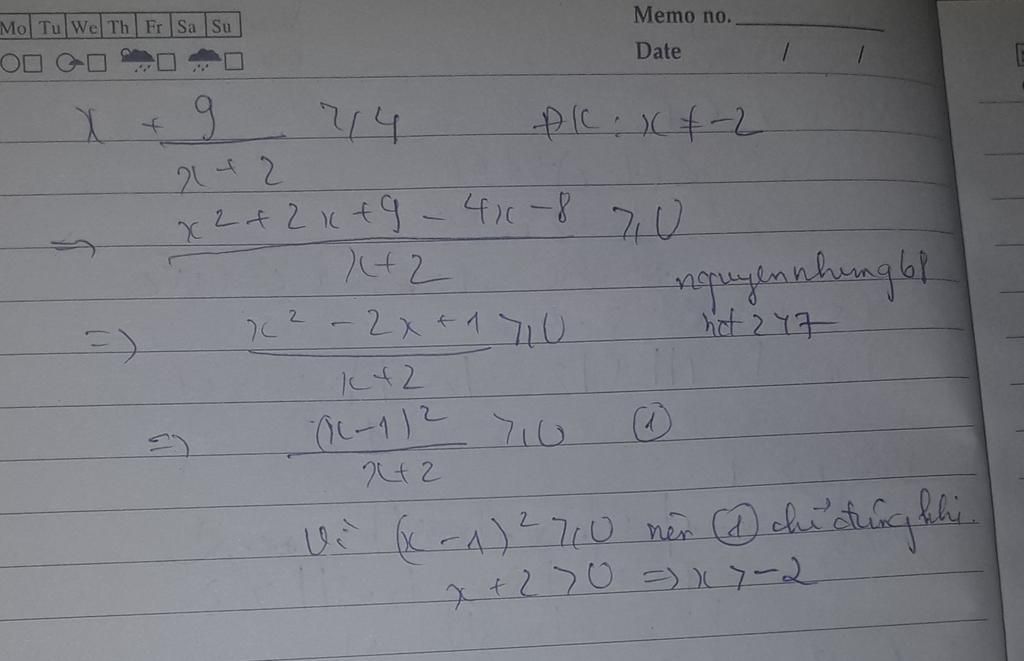 Mo Tu We Th Fr Sa Su
Memo no.
Date / /
x + 9/(x+2) ≥ 4 ĐK: x ≠ -2
=> (x² + 2x + 9 - 4x - 8)/(x+2) ≥ 0
nguyennhung68
hdt 247
=> (x² - 2x + 1)/(x+2) ≥ 0
=> (x-1)²/(x+2) ≥ 0 ①
Vì (x-1)² ≥ 0 nên ① chỉ đúng khi
x + 2 > 0 => x > -2